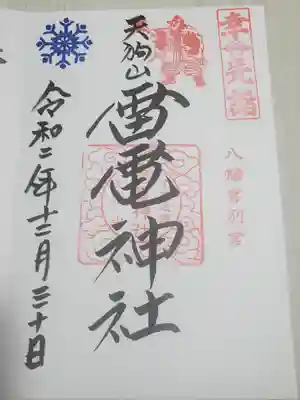 八幡宮別宮
天狗山
雷電神社
令和二年十二月三十日